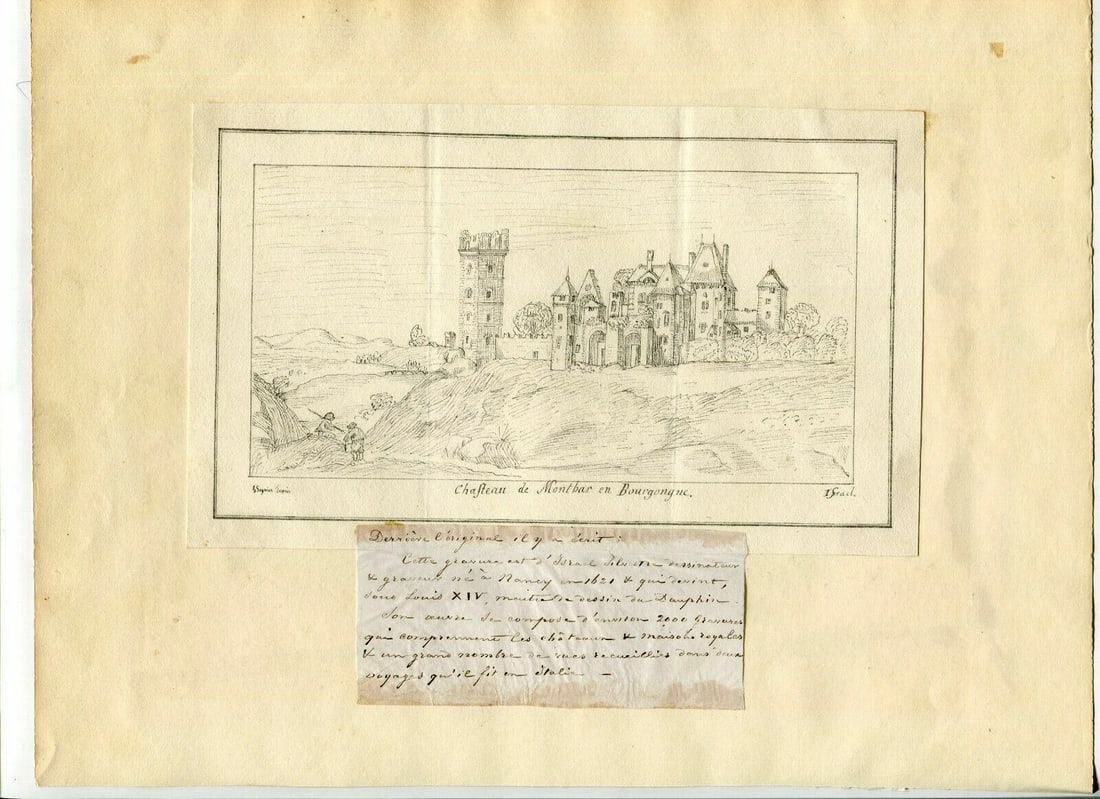 Chasteau de Montbar en Bourgongne.
Israel.
Derrière l'original il y a écrit :
Cette gravure est d'Israel Silvestre dessinateur
& graveur né à Nancy en 1621 & qui devint,
sous Louis XIV, maitre de dessin du Dauphin.
Son œuvre se compose d'environ 2000 gravures
qui comprennent les châteaux & maisons royales
& un grand nombre de vues recueillies dans deux
voyages qu'il fit en Italie —